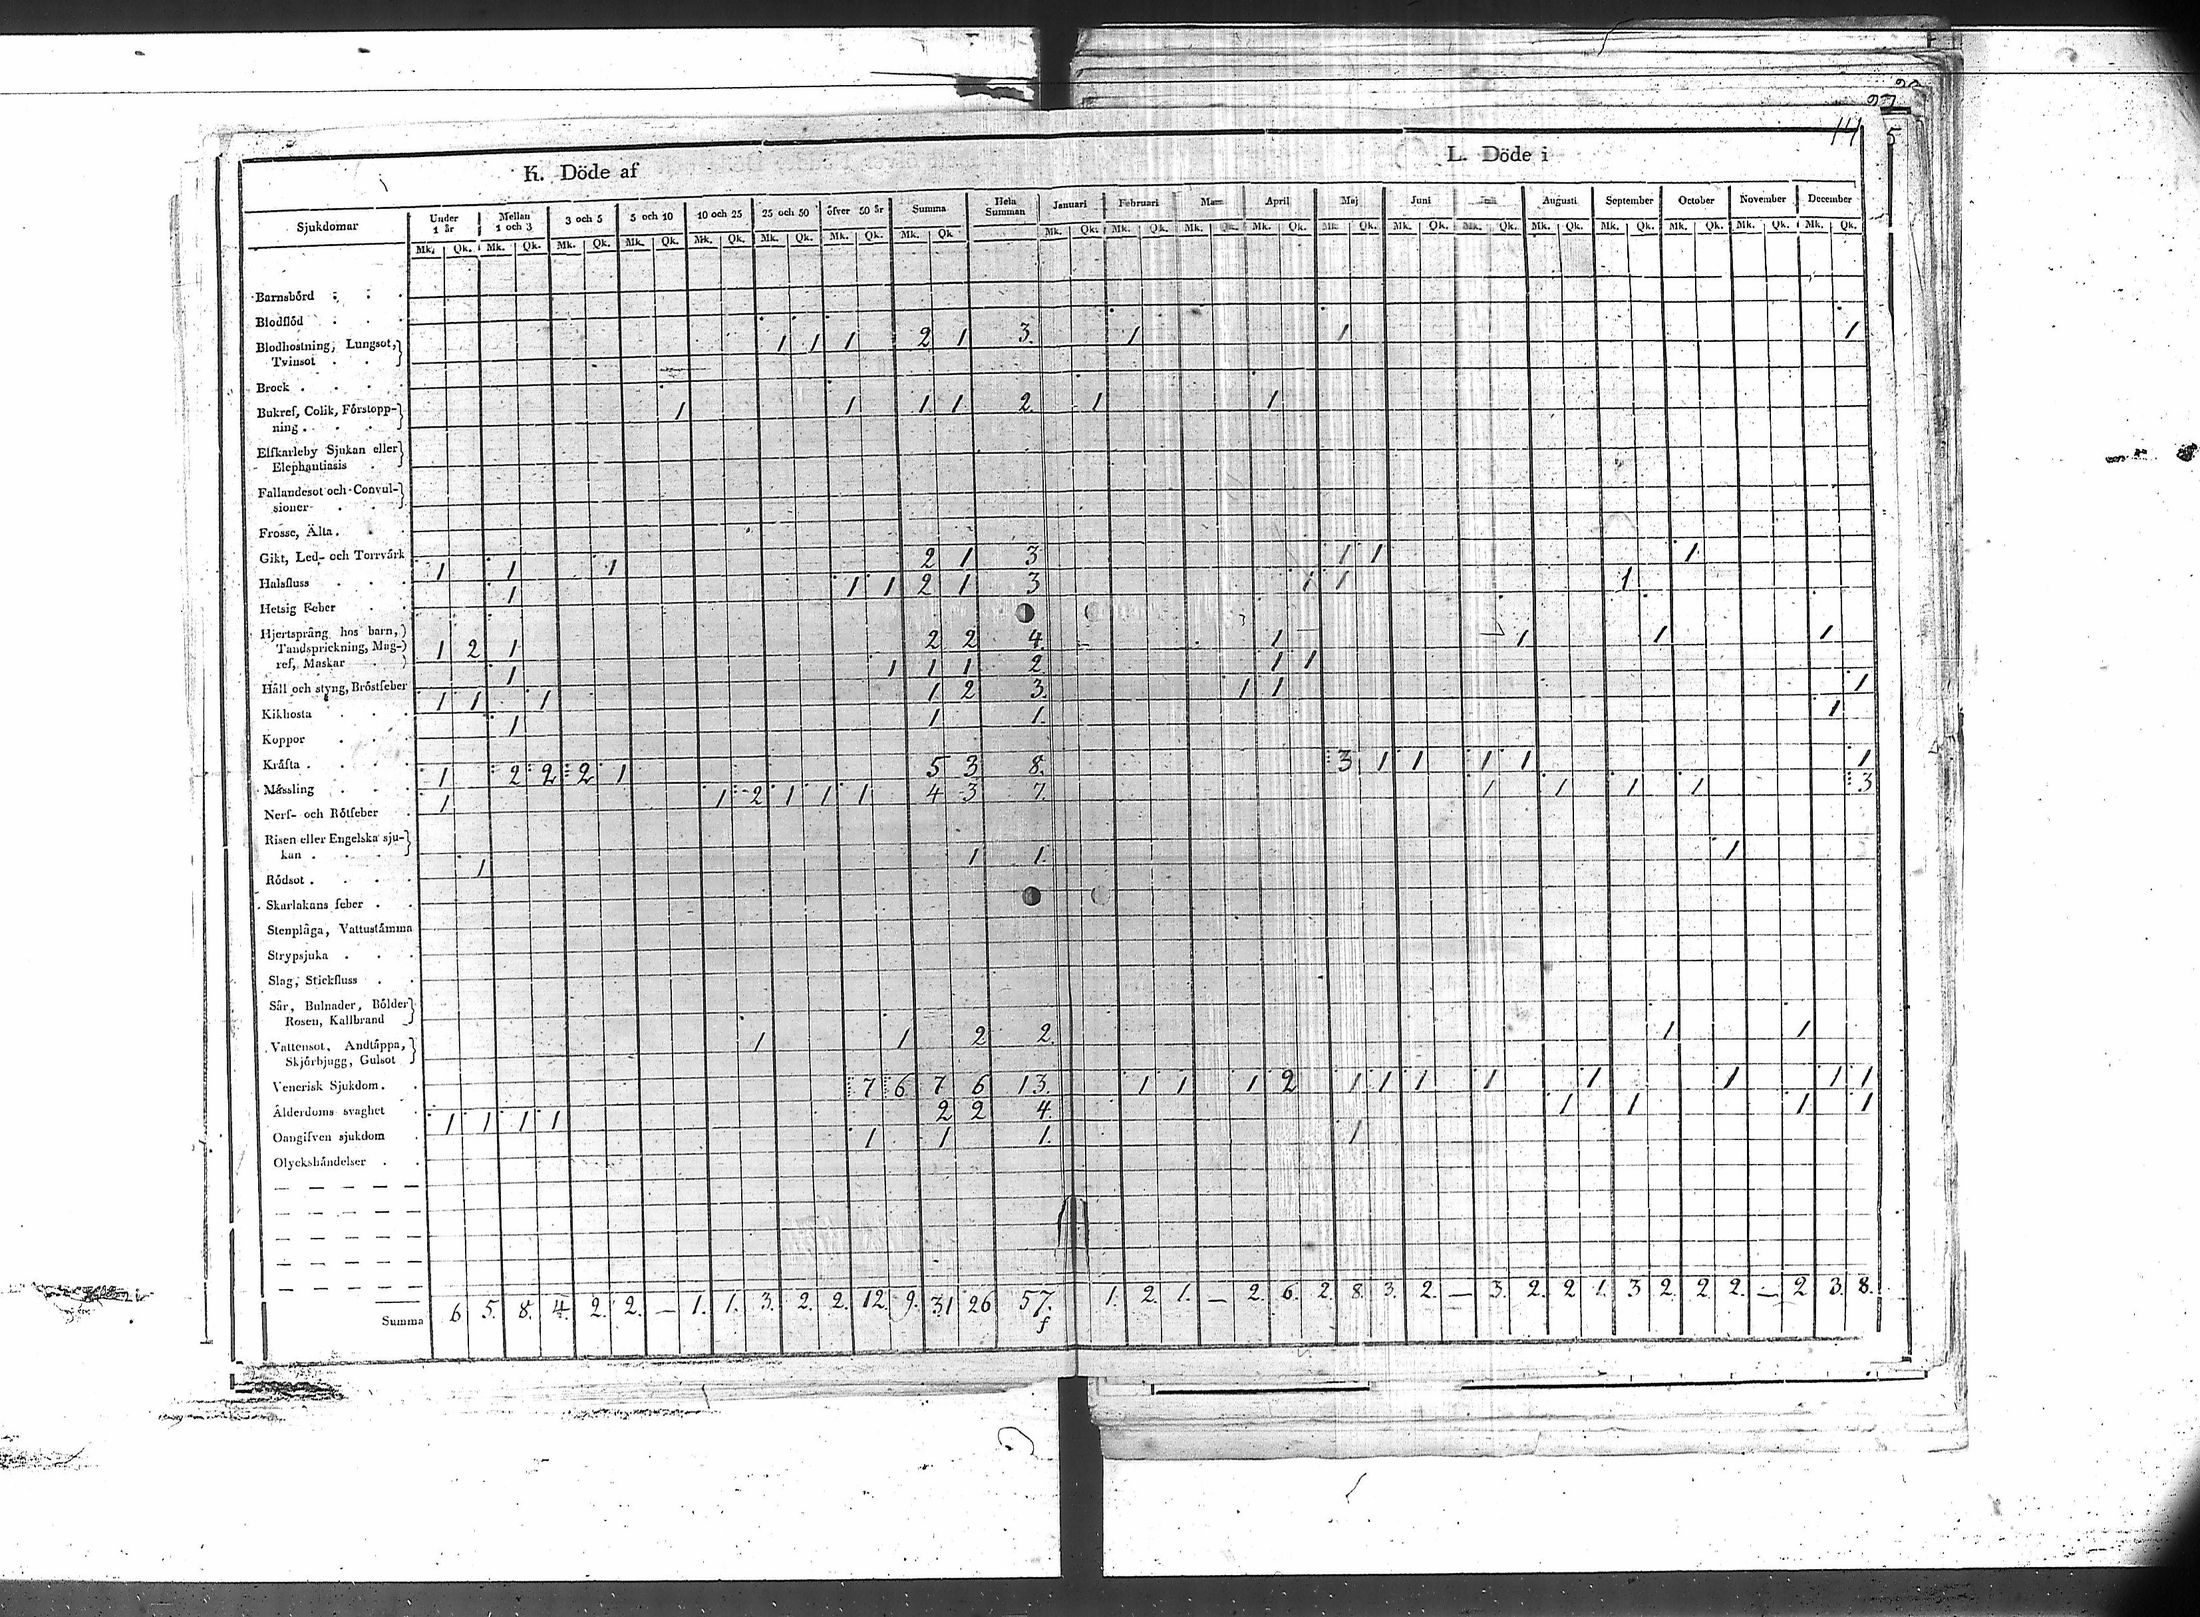 14
5
K. Döde af
L. Döde i
Sjukdomar | Under 1 år | Mellan 1 och 3 | 3 och 5 | 5 och 10 | 10 och 25 | 25 och 50 | öfver 50 år | Summa | Hela Summan | Januari | Februari | Mars | April | Maj | Juni | Juli | Augusti | September | October | November | December
Mk. Qk. Mk. Qk. Mk. Qk. Mk. Qk. Mk. Qk. Mk. Qk. Mk. Qk. Mk. Qk. Mk. Qk. Mk. Qk. Mk. Qk. Mk. Qk. Mk. Qk. Mk. Qk. Mk. Qk. Mk. Qk. Mk. Qk. Mk. Qk. Mk. Qk. Mk. Qk.
Barnsbörd
Blodflöd
Blodhostning, Lungsot, 1 1 1 2 1 3. 1 1 1
Tvinsot
Brock
Bukref, Colik, Förstopp- 1 1 1 1 2. 1 1
ning
Elfkarleby Sjukan eller
Elephantiasis
Fallandesot och Convul-
sioner
Frosse, Älta
Gikt, Led- och Torrvärk 1 1 1 2 1 3 1 1 1
Halsfluss 1 1 1 2 1 3 1 1 1
Hetsig Feber
Hjertsprång hos barn,
Tandsprickning, Mag- 1 2 1 2 2 4. 1 1 1 1
ref, Maskar
1 1 1 1 2 1 1
Håll och styng, Bröstfeber 1 1 1 1 2 3. 1 1 1
Kikhosta 1 1 1. 1
Koppor
Kräfta 1 2 2 2 1 5 3 8. 3 1 1 1 1 1
Mässling 1 1 2 1 1 1 4 3 7. 1 1 1 1 3
Nerf- och Rötfeber
Risen eller Engelska sju-
kan 1 1 1. 1
Rödsot
Skarlakans feber
Stenplåga, Vattustämma
Strypsjuka
Slag, Stickfluss
Sår, Bulnader, Bölder
Rosen, Kallbrand
Vattensot, Andtäppa, 1 1 2 2. 1 1
Skjörbjugg, Gulsot
Venerisk Sjukdom 7 6 7 6 13. 1 1 1 2 1 1 1 1 1 1 1 1
Ålderdoms svaghet 1 1 1 1 2 2 4. 1 1 1 1
Oangifven sjukdom 1 1 1. 1
Olyckshändelser
Summa 6 5. 8. 4. 2. 2. — 1. 1. 3. 2. 2. 12. 9. 31 26 57. 1. 2. 1. — 2. 6. 2. 8. 3. 2. — 3. 2. 2. 1. 3 2. 2. 2. — 2 3. 8.